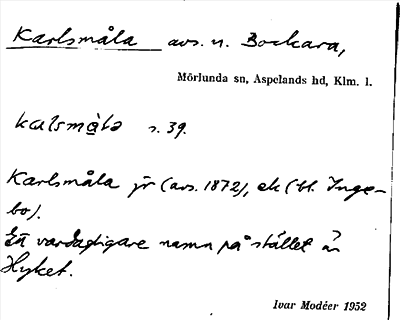 Karlsmåla avs. u. Bockara,
Mörlunda sn, Aspelands hd, Klm. l.
kalsmåla s. 39.
Karlsmåla jr (avs. 1872), ek (bl. Inge-
bo).
Ett vardagligare namn på stället är
Hyket.
Ivar Modéer 1952